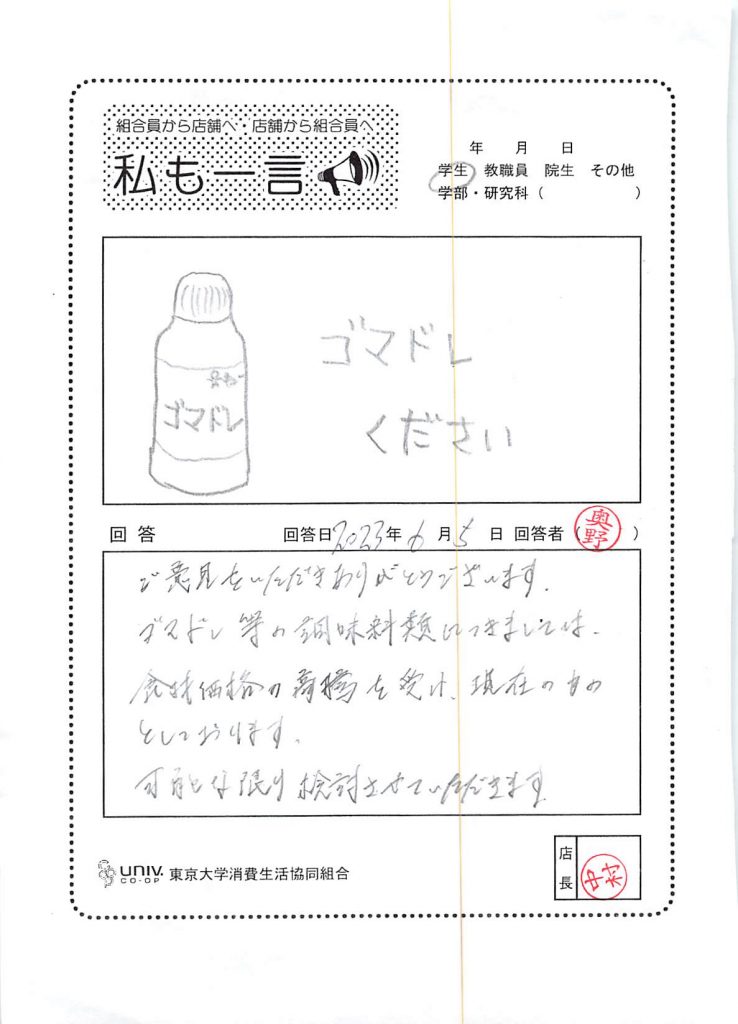 組合員から店舗へ・店舗から組合員へ
私も一言
年 月 日
学生 教職員 院生 その他
学部・研究科（ ）
ゴマドレ
ゴマドレ
ください
回答 回答日2023年6月5日 回答者（奥野）
ご意見をいただきありがとうございます。
ゴマドレ等の調味料類につきましては、
食材価格の高騰を受け、現在のもの
としております。
可能な限り検討させていただきます
UNIV. CO-OP 東京大学消費生活協同組合
店長 中村